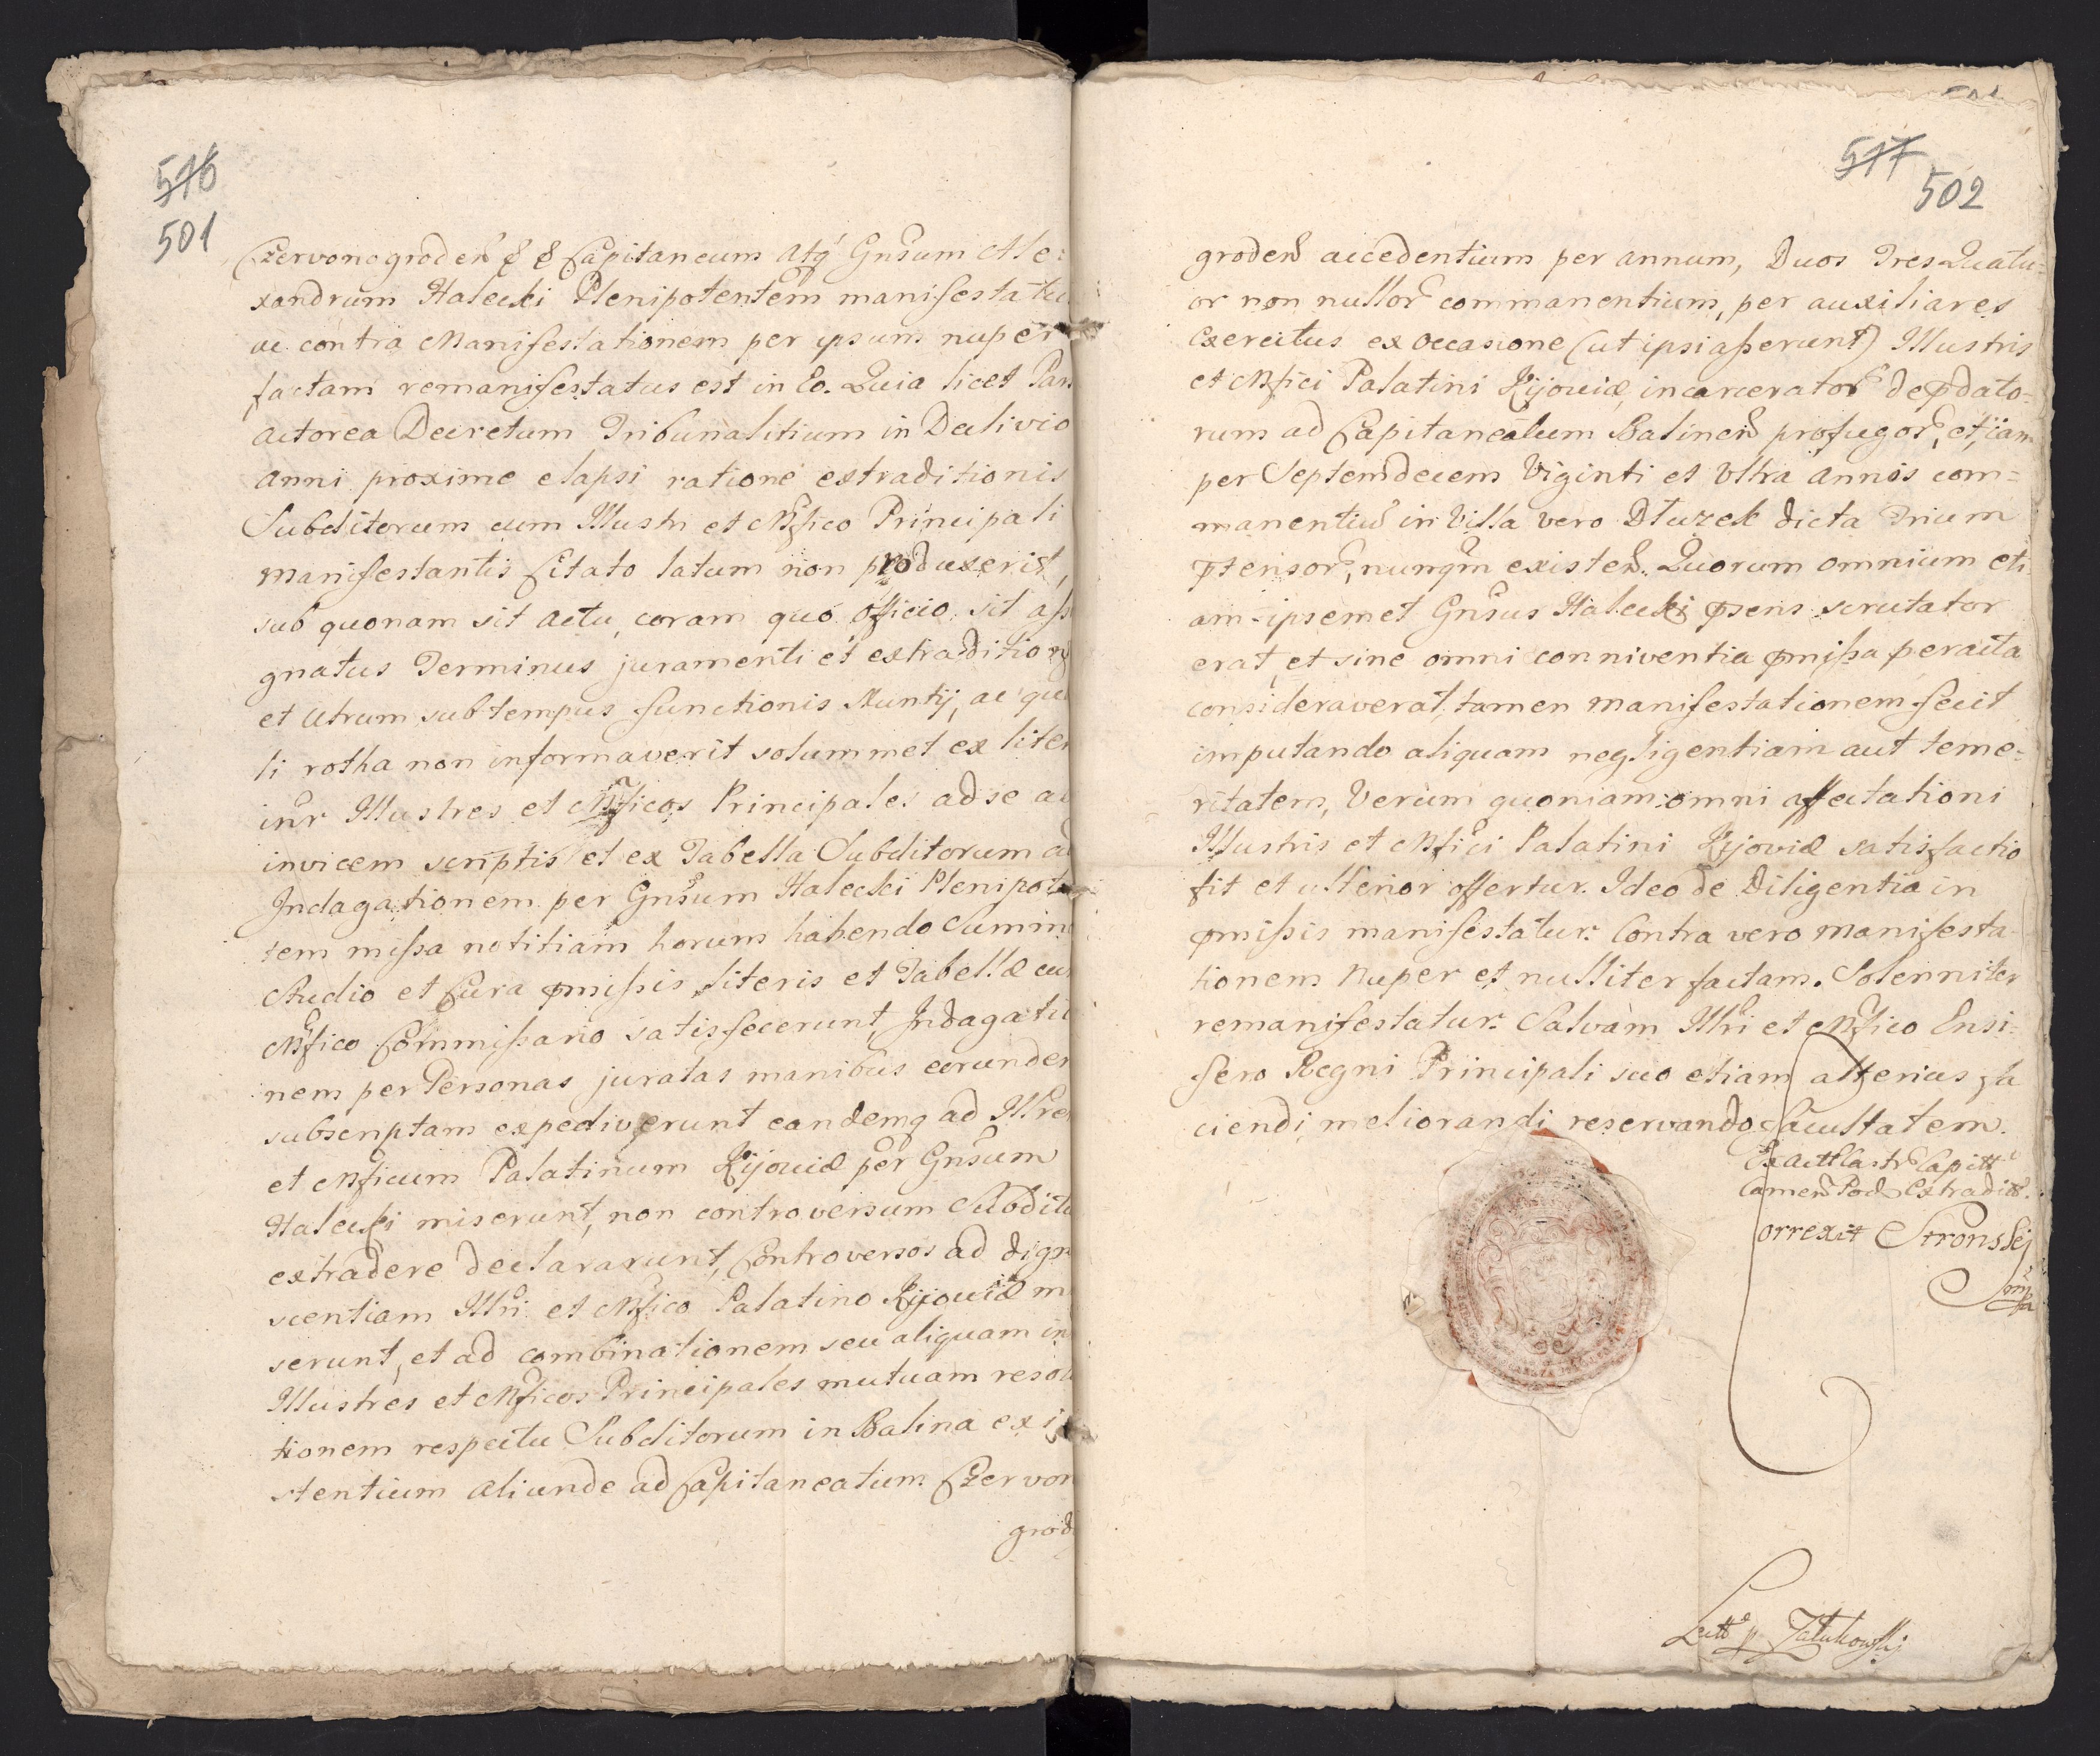 516
501
Czervonogroden & & Capitaneum Atq Gnsum Ale:
xandrum Halecki Plenipotentem manifestatu
ac contra Manifestationem per ipsum nuper
factam remanifestatus est in Eo. Quia licet Pars
Actorea Decretum Tribunalitium in Declivio
Anni proxime elapsi ratione extraditionis
Subditorum cum Illustri et Mfico Principali
Manifestantis Citato latum non produxerit,
sub quonam sit Actu, coram quo Officio sit assi
gnatus Terminus juramenti et extraditionis
et Utrum sub tempus functionis Nuntij, ac qua
li rotha non informaverit solummet ex liter
inter Illustres et Mficos Principales ad se ad
invicem scriptis et ex Tabella Subditorum ad
Indagationem per Gnsum Halecki Plenipoten
tem missa notitiam horum habendo Summo
Studio et Cura pmissis literis et Tabellæ cum
Mfico Commissario satisfecerunt, Indagatio
nem per Personas juratas manibus eorundem
subscriptam expediverunt eandemq ad Illrem
et Mficum Palatinum Kijoviæ per Gnsum
Halecki miserunt, non controversum Subditu
extradere declararunt, Controversos ad digno
scentiam Illri et Mfico Palatino Kijoviæ mi
serunt, et ad combinationem seu aliquam in
Illustres et Mficos Principales mutuam resolu
tionem respectu Subditorum in Balina exi
stentium aliunde ad Capitaneatum Czervon
grod
517
502
groden accedentium per annum, Duos Tres Quatu=
or non nullor commanentium, per auxiliares
Exercitus ex occasione (ut ipsi asserunt) Illustris
et Mfici Palatini Kijoviæ, incarcerator depdato=
rum ad Capitaneatum Balinen profugor, et jam
per Septemdecem Viginti et Ultra Annos com=
manentiu in Villa vero Dłuzek dicta Trium
ptensor, nunqm existen. Quorum omnium eti
am ipsemet Gnsus Halecki psens scrutator
erat, et sine omni conniventia pmissa peracta
consideraverat, tamen manifestationem fecit
imputando aliquam negligentiam aut teme=
ritatem, Verum quoniam omni affectationi
Illustris et Mfici Palatini Kijoviæ satisfactio
fit et ulterior offertur. Ideo de Diligentia in
pmissis manifestatur. Contra vero Manifesta=
tionem Nuper et nulliter factam. Solenniter
remanifestatur. Salvam Illri et Mfico Ensi=
fero Regni Principali suo etiam alterius fa
ciendi, meliorandi reservando facultatem.
Ex Actt Castr Capitt
Camen Pod Extradit.
Correxit Stronskj
mp
Lectt p Załukowskj